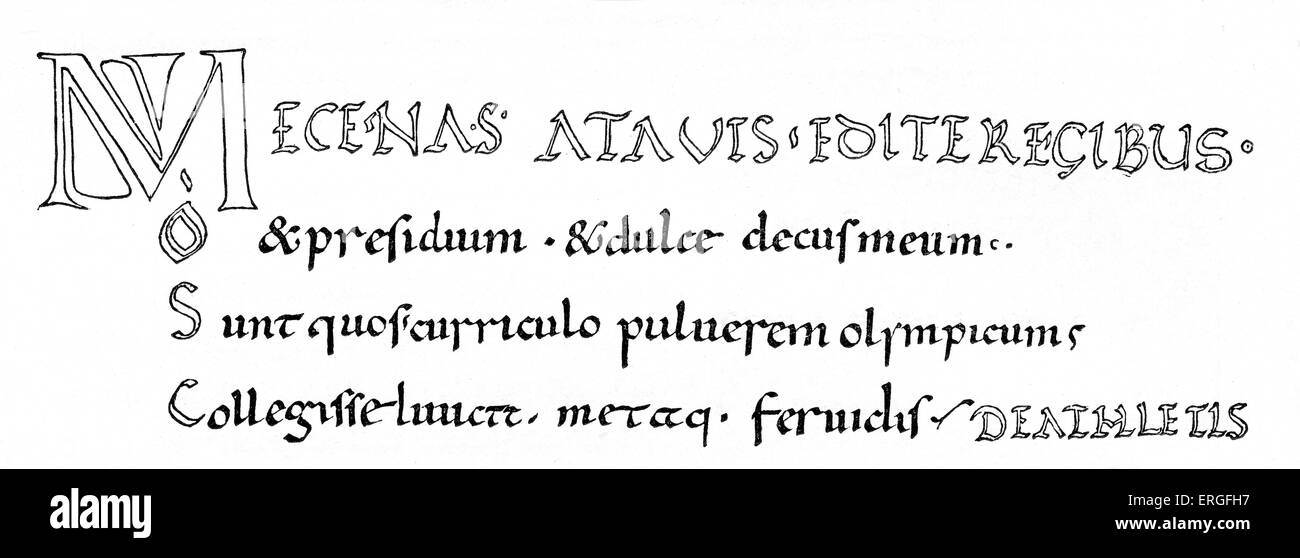 MECENAS· ATAVIS· EDITE REGIBUS·
O &presidium · &dulce decusmeum
Sunt quos curriculo puluerem olympicum
Collegisse iuuat. metaq· feruidis DEATHLETIS
alamy
Image ID: ERGFH7
www.alamy.com